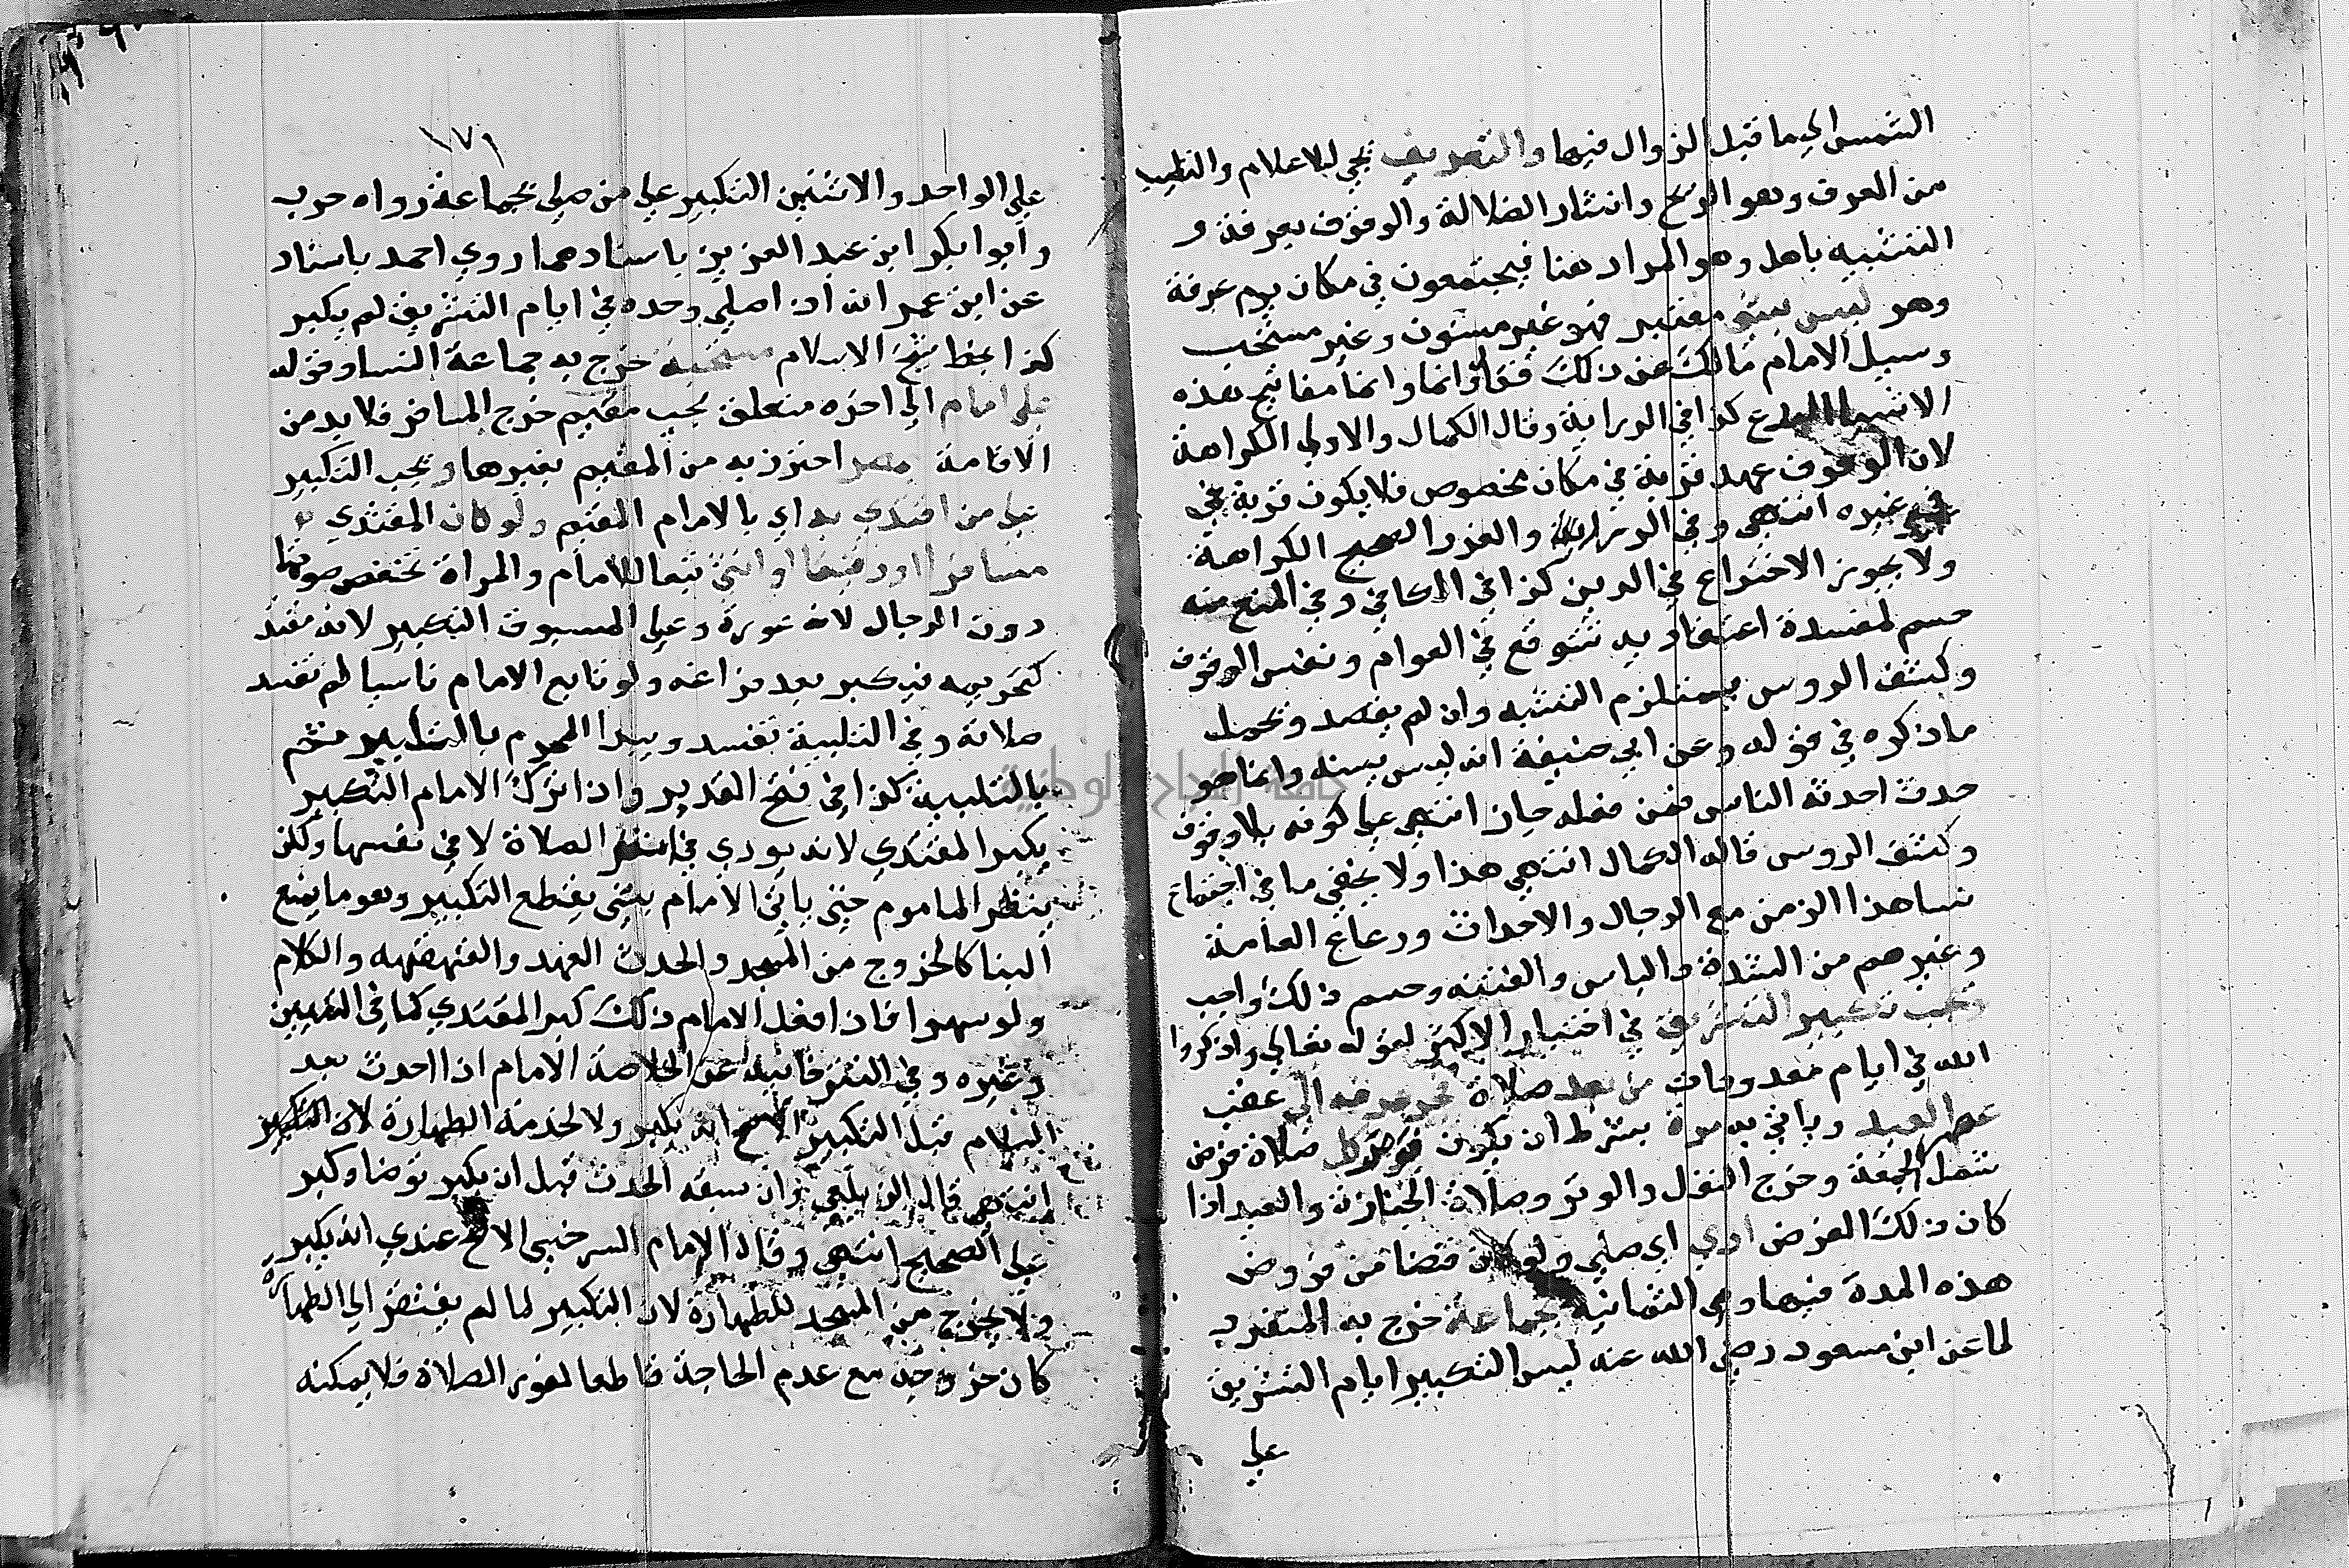 الشمس الي ما قبل الزوال فيها والتعريف يجي للاعلام والتطيب
من العرف وهو الريح وانشاد الضلالة والوقوف بعرفة و
التشبيه باهل وهو المراد هنا فيجتمعون في مكان يوم عرفة
وهو ليس بشي معتبر فهو غير مسنون وغير مستحب
وسيل الامام مالك عن ذلك فقال وانما مفاتيح هذه
الاشيا البدع كذا في الدراية وقال الكمال والاولي الكراهة
لان الوقوف عهد قربة في مكان مخصوص فلا يكون قربة في
غيره انتهي وفي الدراية والعذر الصحيح الكراهة
ولا يجوز الاختراع في الدين كذا في الكافي وفي المنع منه
حسم لمفسدة اعتقادية تتوقع في العوام ونفس الوقوف
وكشف الروس يستلزم التشبه وان لم يقصد ويحمل
ما ذكره في قوله وعن ابي حنيفة انه ليس بسنه وانما هو
حدث احدثه الناس فمن فعله جاز انتهي علي كونه بلا وقوف
وكشف الروس قاله الكمال انتهي هذا ولا يخفي ما في اجتماع
نسا هذا الزمن مع الرجال والاحداث ورعاع العامة
وغيرهم من الشدة والباس والفتنه وحسم ذلك واجب
ويجب تكبير التشريق في اختيار الاكثر لقوله تعالي واذكروا
الله في ايام معدودات من بعد صلاة فجر عرفه الي عقب
عصر العيد وياتي به مرة بشرط ان يكون فور كل صلاة فرض
شمل الجمعة وخرج النفل والوتر وصلاة الجنازة والعيد اذا
كان ذلك الفرض ادي اي صلي ولو كان قضا من فروض
هذه المدة فيها وهي الثمانية بجماعة خرج به المنفرد
لما عن ابن مسعود رضي الله عنه ليس التكبير ايام التشريق
علي
١٧١
علي الواحد والاثنين التكبير علي من صلي بجماعة رواه حرب
وابوا بكر ابن عبد العزيز باسنادهما روي احمد باسناد
عن ابن عمر انه اذا صلي وحده في ايام التشريق لم يكبر
كذا بخط شيخ الاسلام مستحبة خرج به جماعة النسا وقوله
علي امام الي اخره متعلق بيجب مقيم خرج المسافر فلا بد من
الاقامة بمصر احترز به من المقيم بغيرها ويجب التكبير
علي من اقتدي به اي بالامام المقيم ولو كان المقتدي
مسافرا او رقيقا او انثي تبعا للامام والمراة تخفض صوتها
دون الرجال لانه عورة وعلي المسبوق التكبير لانه مقتد
كتحريمه فيكبر بعد فراغه ولو تابع الامام ناسيا لم تفسد
صلاته وفي التلبية تفسد ويبدا المحرم بالتكبير ثم
بالتلبية كذا في فتح القدير واذا ترك الامام التكبير
يكبر المقتدي لانه يودي في اثر الصلاة لا في نفسها ولكن
ينتظر الماموم حتي ياتي الامام بشي يقطع التكبير وهو ما يمنع
البنا كالخروج من المسجد والحدث العمد والقهقهه والكلام
ولو سهوا فاذا فعل الامام ذلك كبر المقتدي كما في التبيين
وغيره وفي التترخانية عن الخلاصة الامام اذا احدث بعد
السلام قبل التكبير الاصح انه يكبر ولا يخدمه الطهارة لان التكبير
انتهي قال الزيلعي وان سبقه الحدث قبل ان يكبر توضا وكبر
علي الصحيح انتهي وقال الامام السرخسي الاصح عندي انه يكبر
ولا يخرج من المسجد للطهارة لان التكبير لما لم يفتقر الي الطهارة
كان خروجه مع عدم الحاجة قاطعا لفور الصلاة فلا يمكنه